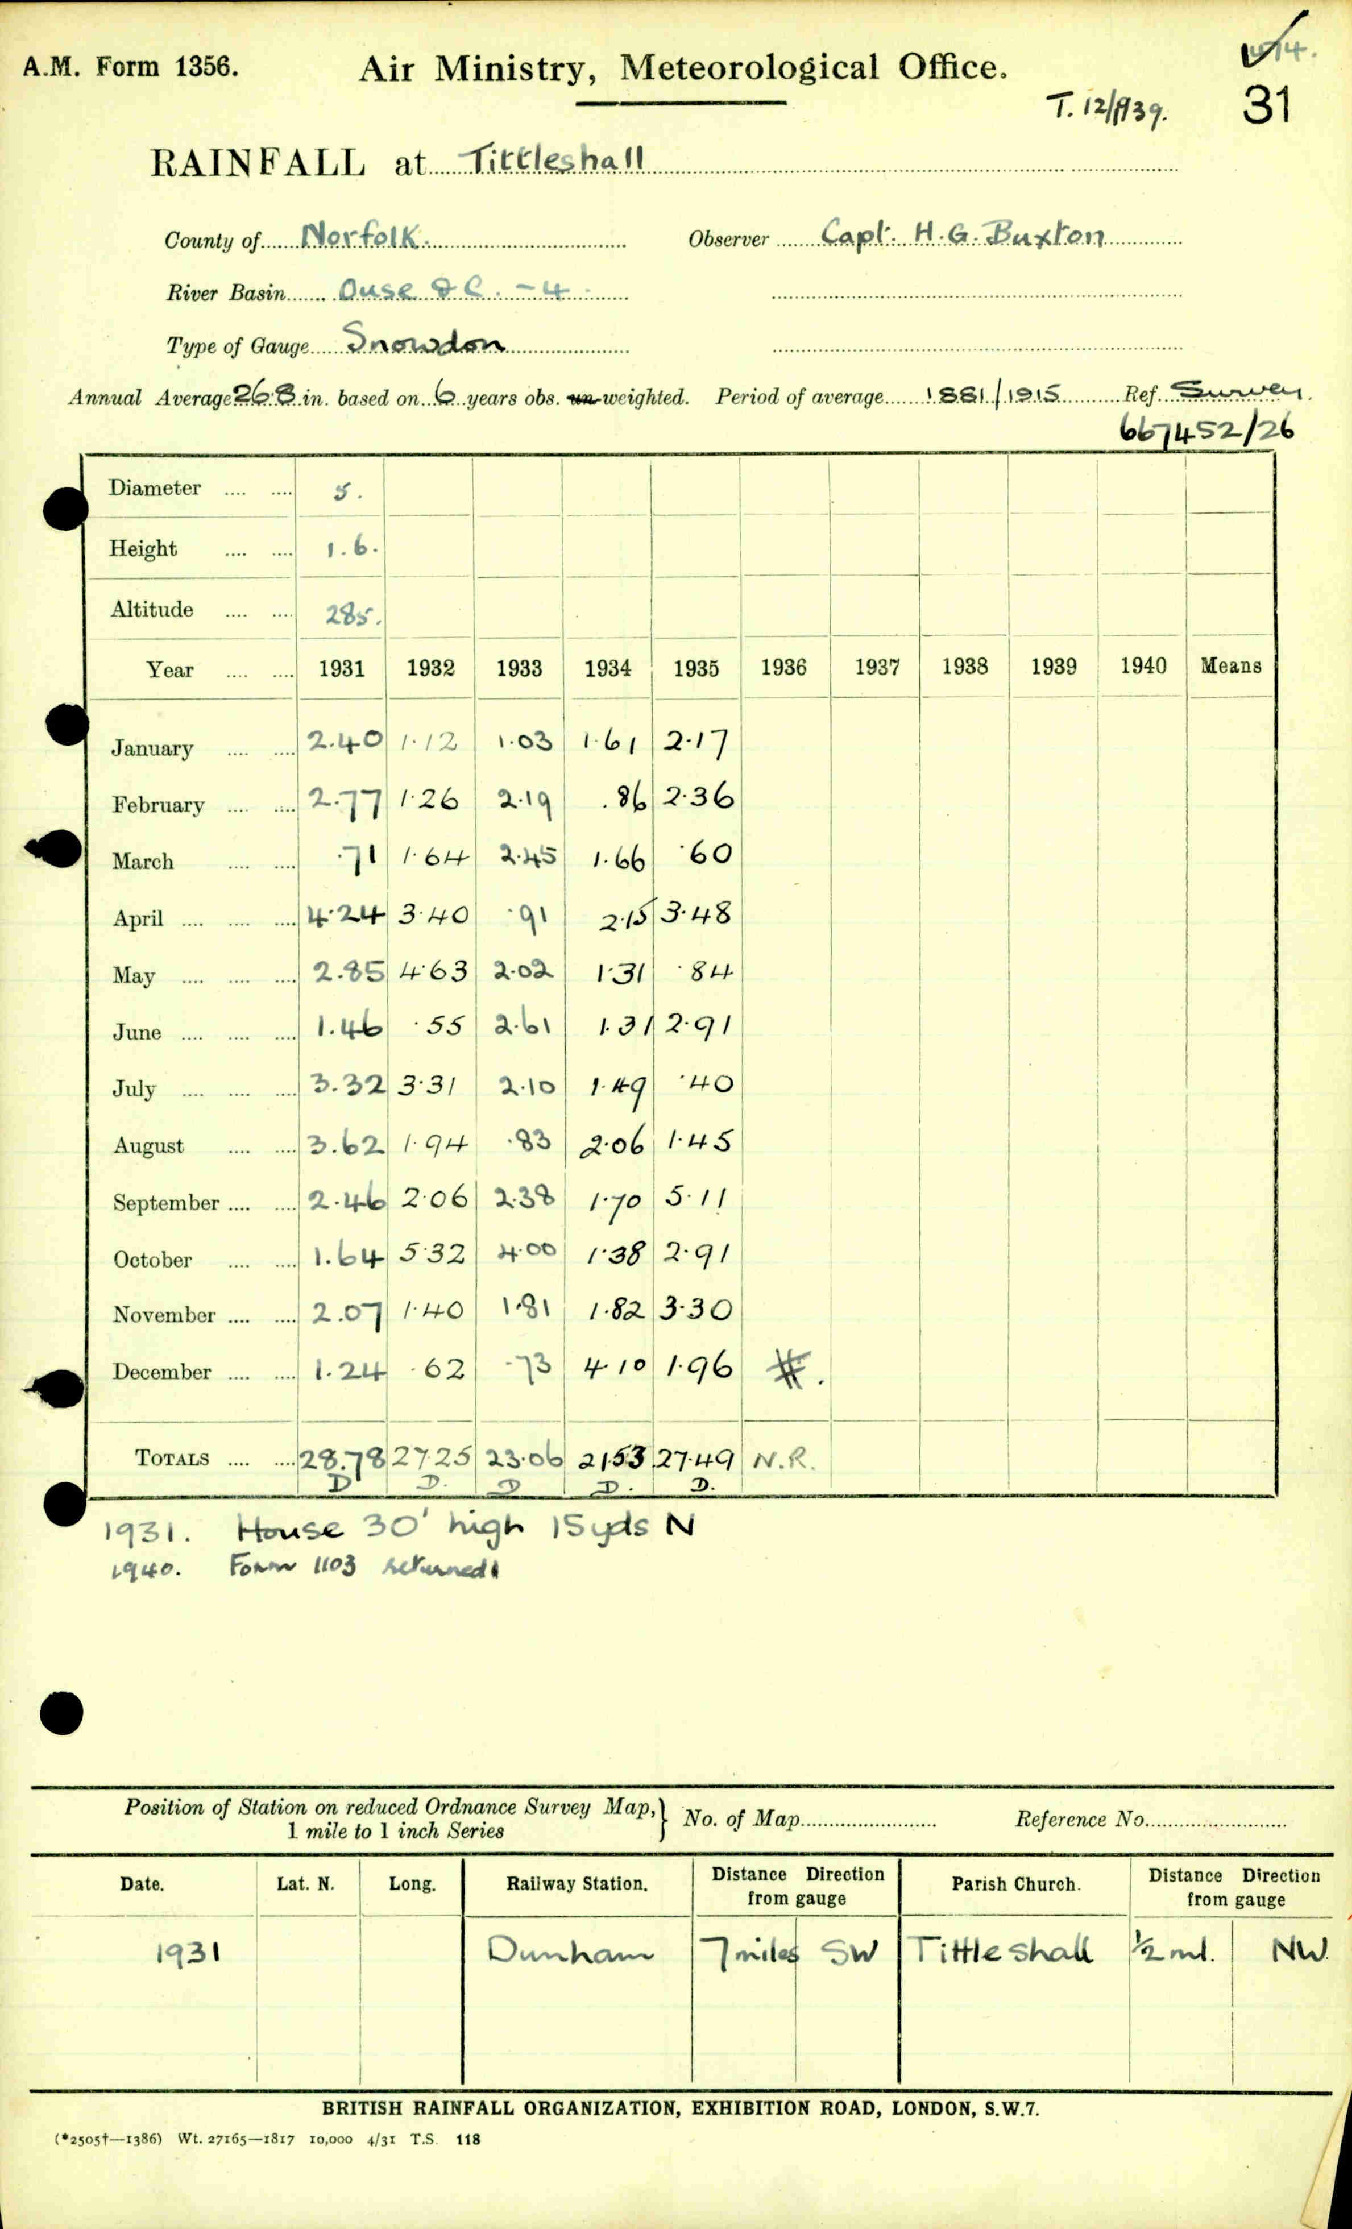 A.M. Form 1356. Air Ministry, Meteorological Office.
T. 12/1939. 31
RAINFALL at Tittleshall
County of Norfolk. Observer Capt. H.G. Buxton
River Basin Ouse &C. -4.
Type of Gauge Snowdon
Annual Average 26.8 in. based on 6 years obs. un-weighted. Period of average 1881/1915 Ref. Survey.
667452/26
Diameter .... .... 5.
Height .... .... 1.6.
Altitude .... .... 285.
Year .... .... 1931 1932 1933 1934 1935 1936 1937 1938 1939 1940 Means
January .... .... 2.40 1.12 1.03 1.61 2.17
February .... .... 2.77 1.26 2.19 .86 2.36
March .... .... .71 1.64 2.45 1.66 .60
April .... .... .... 4.24 3.40 .91 2.15 3.48
May .... .... .... 2.85 4.63 2.02 1.31 .84
June .... .... .... 1.46 .55 2.61 1.31 2.91
July .... .... .... 3.32 3.31 2.10 1.49 .40
August .... .... 3.62 1.94 .83 2.06 1.45
September .... .... 2.46 2.06 2.38 1.70 5.11
October .... .... 1.64 5.32 4.00 1.38 2.91
November .... .... 2.07 1.40 1.81 1.82 3.30
December .... .... 1.24 .62 .73 4.10 1.96 #.
TOTALS .... .... 28.78 27.25 23.06 21.53 27.49 N.R.
D D. D D. D.
1931. House 30' high 15yds N
1940. Form 1103 returned.
Position of Station on reduced Ordnance Survey Map, } No. of Map Reference No.
1 mile to 1 inch Series
Date. Lat. N. Long. Railway Station. Distance Direction from gauge Parish Church. Distance Direction from gauge
1931 Dunham 7 miles SW Tittleshall ½ ml. NW.
BRITISH RAINFALL ORGANIZATION, EXHIBITION ROAD, LONDON, S.W.7.
(*2505†—1386) Wt. 27165—1817 10,000 4/31 T.S. 118